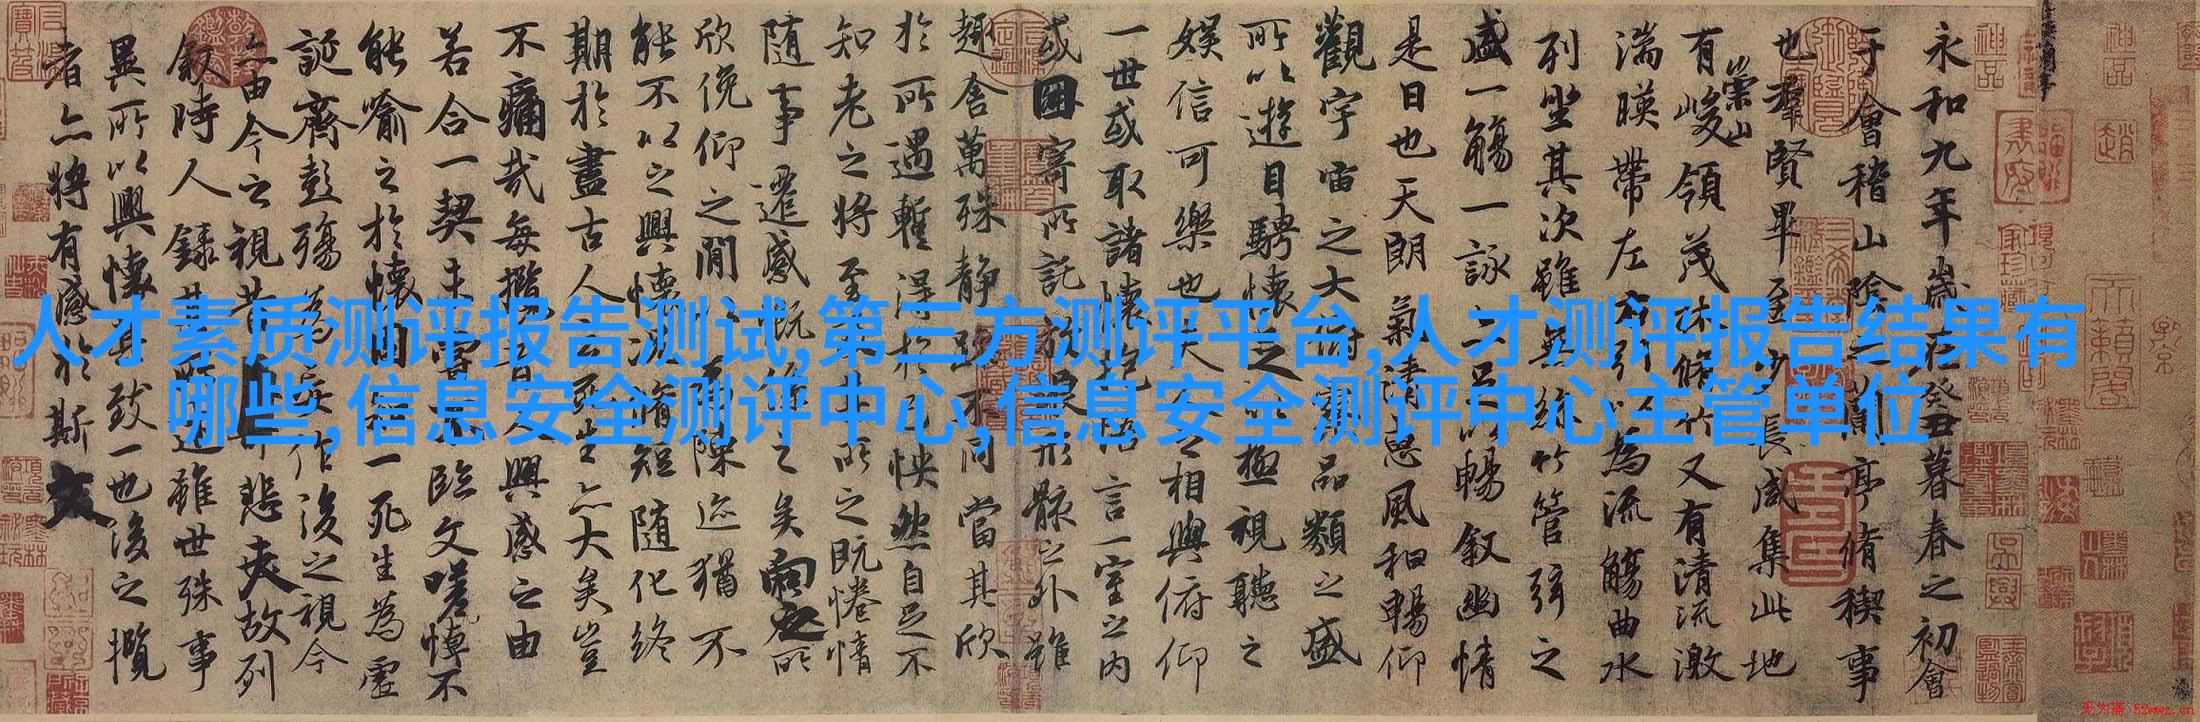 人才素质测评报告测试,第三方测评平台,人才测评报告结果有
哪些,信息安全测评中心,信息安全测评中心主管单位
永和九年歲在癸丑暮春之初會
于會稽山陰之蘭亭脩稧事
也羣賢畢至少長咸集此地
有崇山峻領茂林脩竹又有清流激
湍暎帶左右引以為流觴曲水
列坐其次雖無絲竹管弦之
盛一觴一詠亦足以暢敘幽情
是日也天朗氣清惠風和暢仰
觀宇宙之大俯察品類之盛
所以遊目騁懷足以極視聽之
娛信可樂也夫人之相與俯仰
一世或取諸懷抱悟言一室之內
或因寄所託放浪形骸之外雖
趣舍萬殊靜躁不同當其欣
於所遇暫得於己怏然自足不
知老之將至及其所之既惓情
隨事遷感慨係之矣向之所
欣俛仰之閒以為陳迹猶不
能不以之興懷況脩短隨化終
期於盡古人云死生亦大矣豈
不痛哉每攬昔人興感之由
若合一契未嘗不臨文嗟悼不
能喻之於懷固知一死生為虛
誕齊彭殤為妄作後之視今
亦由今之視昔悲夫故列
敘時人錄其所述雖世殊事
異所以興懷其致一也後之攬
者亦將有感於斯文
无为斋 52wwz.cn